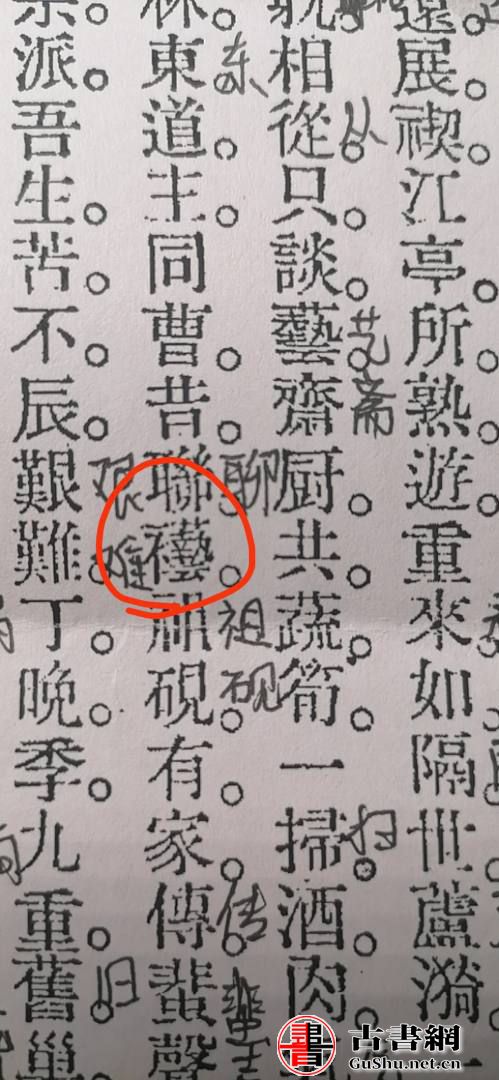 展禊。江亭。所。熟。遊。重來。如隔世。蘆漪。
相從。只。談。藝。齋厨。共。蔬。筍。一掃。酒。肉。
東。道。主。同曹。昔。聯襼。祖硯。有。家。傳。蜚聲
派。吾生。苦。不。辰。艱難。丁。晚。季。九重。舊巢
从
艺斋
扫
东
聊
祖砚
传
蜚
艰难
旧
書
古書網
GuShu.net.cn